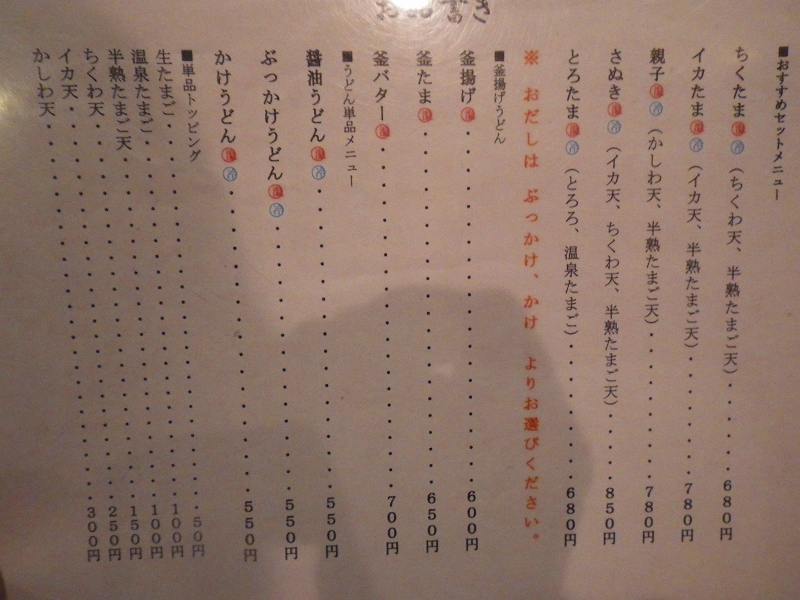 お品書き
■おすすめセットメニュー
ちくたま温冷（ちくわ天、半熟たまご天）・・・・・・・680円
イカたま温冷（イカ天、半熟たまご天）・・・・・・・・780円
親子温冷（かしわ天、半熟たまご天）・・・・・・・・・780円
さぬき温冷（イカ天、ちくわ天、半熟たまご天）・・・・・850円
とろたま温冷（とろろ、温泉たまご）・・・・・・・・・680円
※ おだしは ぶっかけ、かけ よりお選びください。
■釜揚げうどん
釜揚げ温・・・・・・・・・・・・・・・・・・・・600円
釜たま温・・・・・・・・・・・・・・・・・・・・650円
釜バター温・・・・・・・・・・・・・・・・・・・700円
■うどん単品メニュー
醤油うどん温冷・・・・・・・・・・・・・・・・・550円
ぶっかけうどん温冷・・・・・・・・・・・・・・・550円
かけうどん温冷・・・・・・・・・・・・・・・・・550円
■単品トッピング
生たまご・・・・・・・・・・・・・・・・・・・・50円
温泉たまご・・・・・・・・・・・・・・・・・・・100円
半熟たまご天・・・・・・・・・・・・・・・・・・100円
ちくわ天・・・・・・・・・・・・・・・・・・・・150円
イカ天・・・・・・・・・・・・・・・・・・・・・250円
かしわ天・・・・・・・・・・・・・・・・・・・・300円